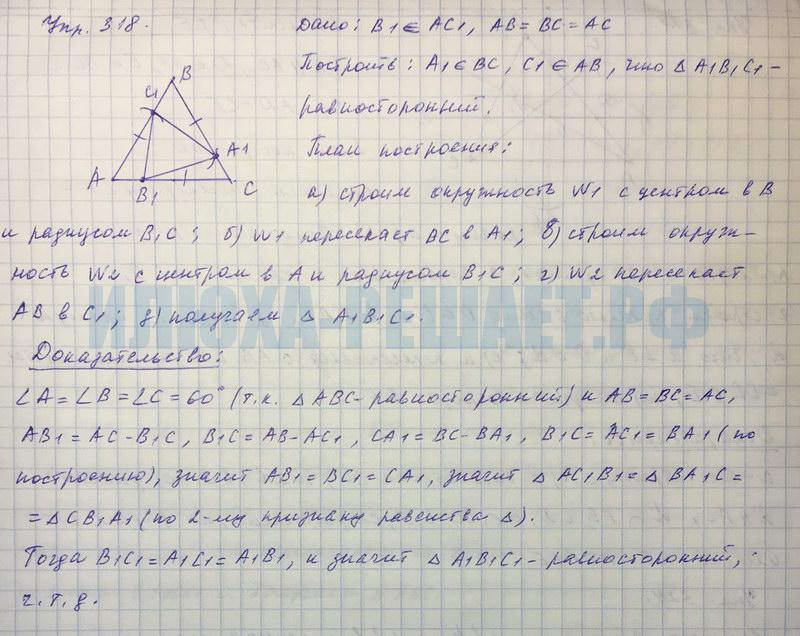 Упр. 318.
Дано: B1 ∈ AC1, AB = BC = AC
Построить: A1 ∈ BC, C1 ∈ AB, что △ A1B1C1 –
равносторонний.
План построения:
а) строим окружность W1 с центром в B
и радиусом B1C; б) W1 пересекает BC в A1; в) строим окруж-
ность W2 с центром в A и радиусом B1C; г) W2 пересекает
AB в C1; д) получаем △ A1B1C1.
Доказательство:
∠A = ∠B = ∠C = 60° (т.к. △ ABC – равносторонний) и AB = BC = AC,
AB1 = AC – B1C, B1C = AB – AC1, CA1 = BC – BA1, B1C = AC1 = BA1 (по
построению), значит AB1 = BC1 = CA1, значит △ AC1B1 = △ BA1C =
= △ CB1A1 (по 2-му признаку равенства △).
Тогда B1C1 = A1C1 = A1B1, и значит △ A1B1C1 – равносторонний,
ч.т.д.
B
C1
A1
A
B1
C
ИЛЮХА-РЕШАЕТ.РФ